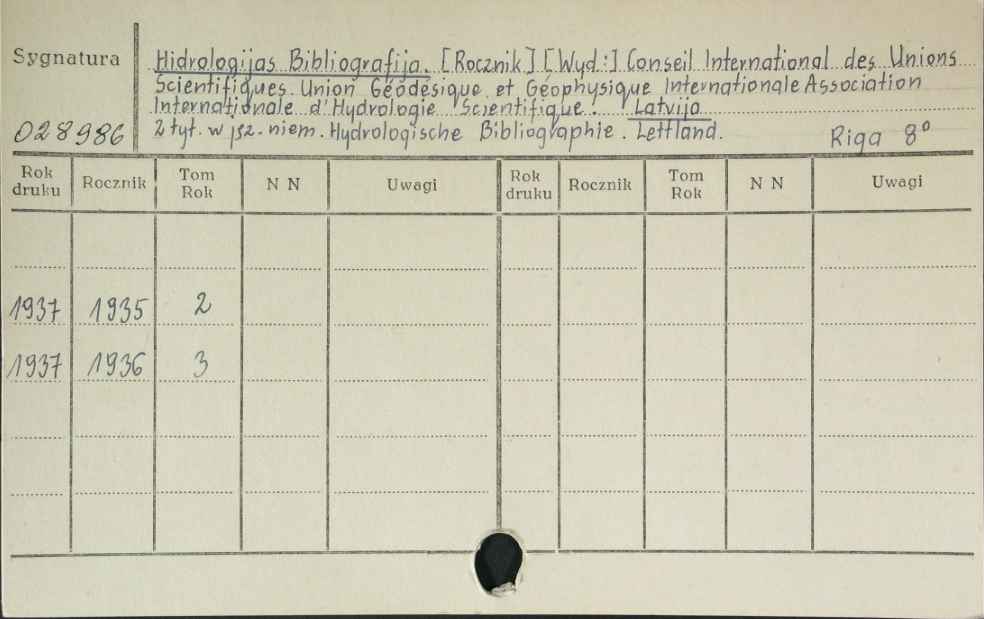 Sygnatura
Hidrologijas Bibliografija. [Rocznik] [Wyd:] Conseil International des Unions
Scientifiques. Union Géodésique et Géophysique Internationale Association
Internationale d'Hydrologie Scientifique. Latvija
028986
Z tyt. w jęz. niem. Hydrologische Bibliographie. Lettland. Riga 8°
Rok druku Rocznik Tom Rok N N Uwagi Rok druku Rocznik Tom Rok N N Uwagi
1937 1935 2
1937 1936 3